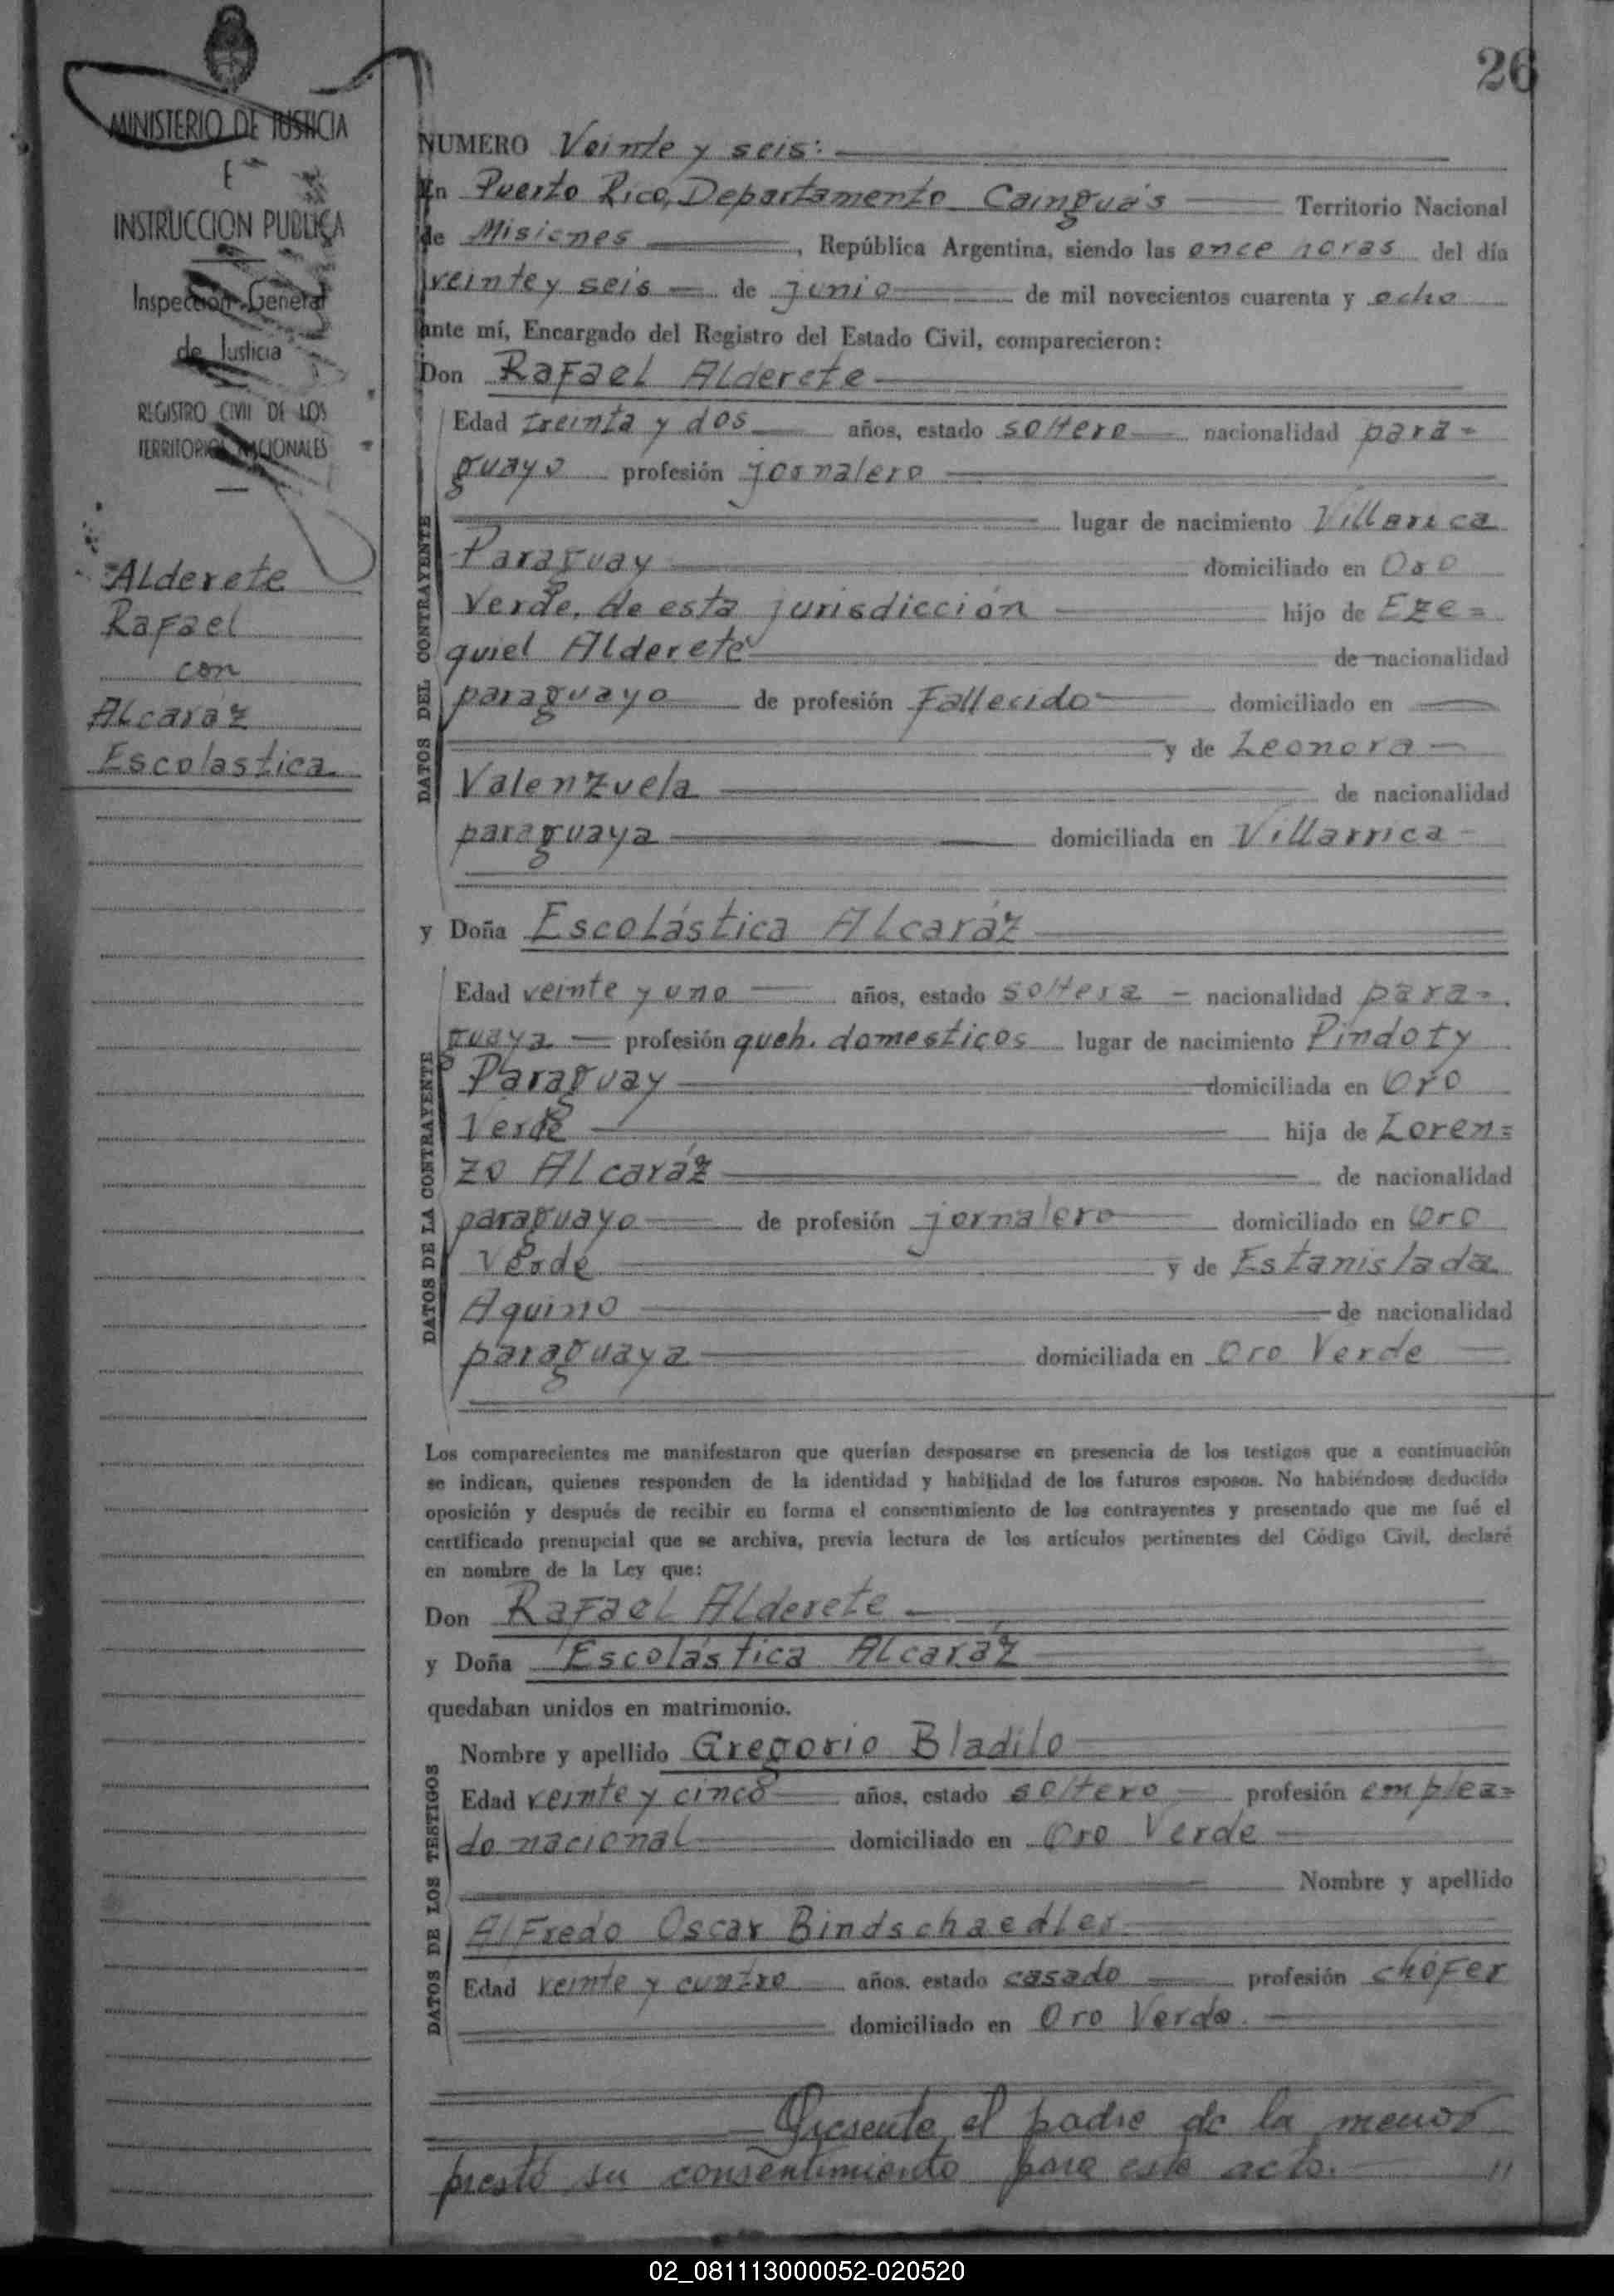 26
MINISTERIO DE JUSTICIA
E
INSTRUCCION PUBLICA
Inspección General
de Justicia
REGISTRO CIVIL DE LOS
TERRITORIOS NACIONALES
Alderete
Rafael
con
Alcaráz
Escolastica
NUMERO Veinte y seis:
En Puerto Rico, Departamento Cainguás Territorio Nacional
de Misiones, República Argentina, siendo las once horas del día
veinte y seis de junio de mil novecientos cuarenta y ocho
ante mí, Encargado del Registro del Estado Civil, comparecieron:
Don Rafael Alderete
DATOS DEL CONTRAYENTE
Edad treinta y dos años, estado soltero nacionalidad para=
guayo profesión jornalero
lugar de nacimiento Villarica
Paraguay domiciliado en Oro
Verde, de esta jurisdicción hijo de Eze=
quiel Alderete de nacionalidad
paraguayo de profesión Fallecido domiciliado en
y de Leonora
Valenzuela de nacionalidad
paraguaya domiciliada en Villarrica
y Doña Escolástica Alcaráz
DATOS DE LA CONTRAYENTE
Edad veinte y uno años, estado soltera nacionalidad para=
guaya profesión queh. domesticos lugar de nacimiento Pindoty
Paraguay domiciliada en Oro
Verde hija de Loren=
zo Alcaráz de nacionalidad
paraguayo de profesión jornalero domiciliado en Oro
Verde y de Estanislada
Aquino de nacionalidad
paraguaya domiciliada en Oro Verde
Los comparecientes me manifestaron que querían desposarse en presencia de los testigos que a continuación
se indican, quienes responden de la identidad y habilidad de los futuros esposos. No habiéndose deducido
oposición y después de recibir en forma el consentimiento de los contrayentes y presentado que me fué el
certificado prenupcial que se archiva, previa lectura de los artículos pertinentes del Código Civil, declaré
en nombre de la Ley que:
Don Rafael Alderete
y Doña Escolástica Alcaráz
quedaban unidos en matrimonio.
DATOS DE LOS TESTIGOS
Nombre y apellido Gregorio Bladilo
Edad veinte y cinco años, estado soltero profesión emplea=
do nacional domiciliado en Oro Verde
Nombre y apellido
Alfredo Oscar Bindschaedler
Edad veinte y cuatro años, estado casado profesión chófer
domiciliado en Oro Verde.
Presente el padre de la menor
prestó su consentimiento para este acto. "
02_081113000052-020520